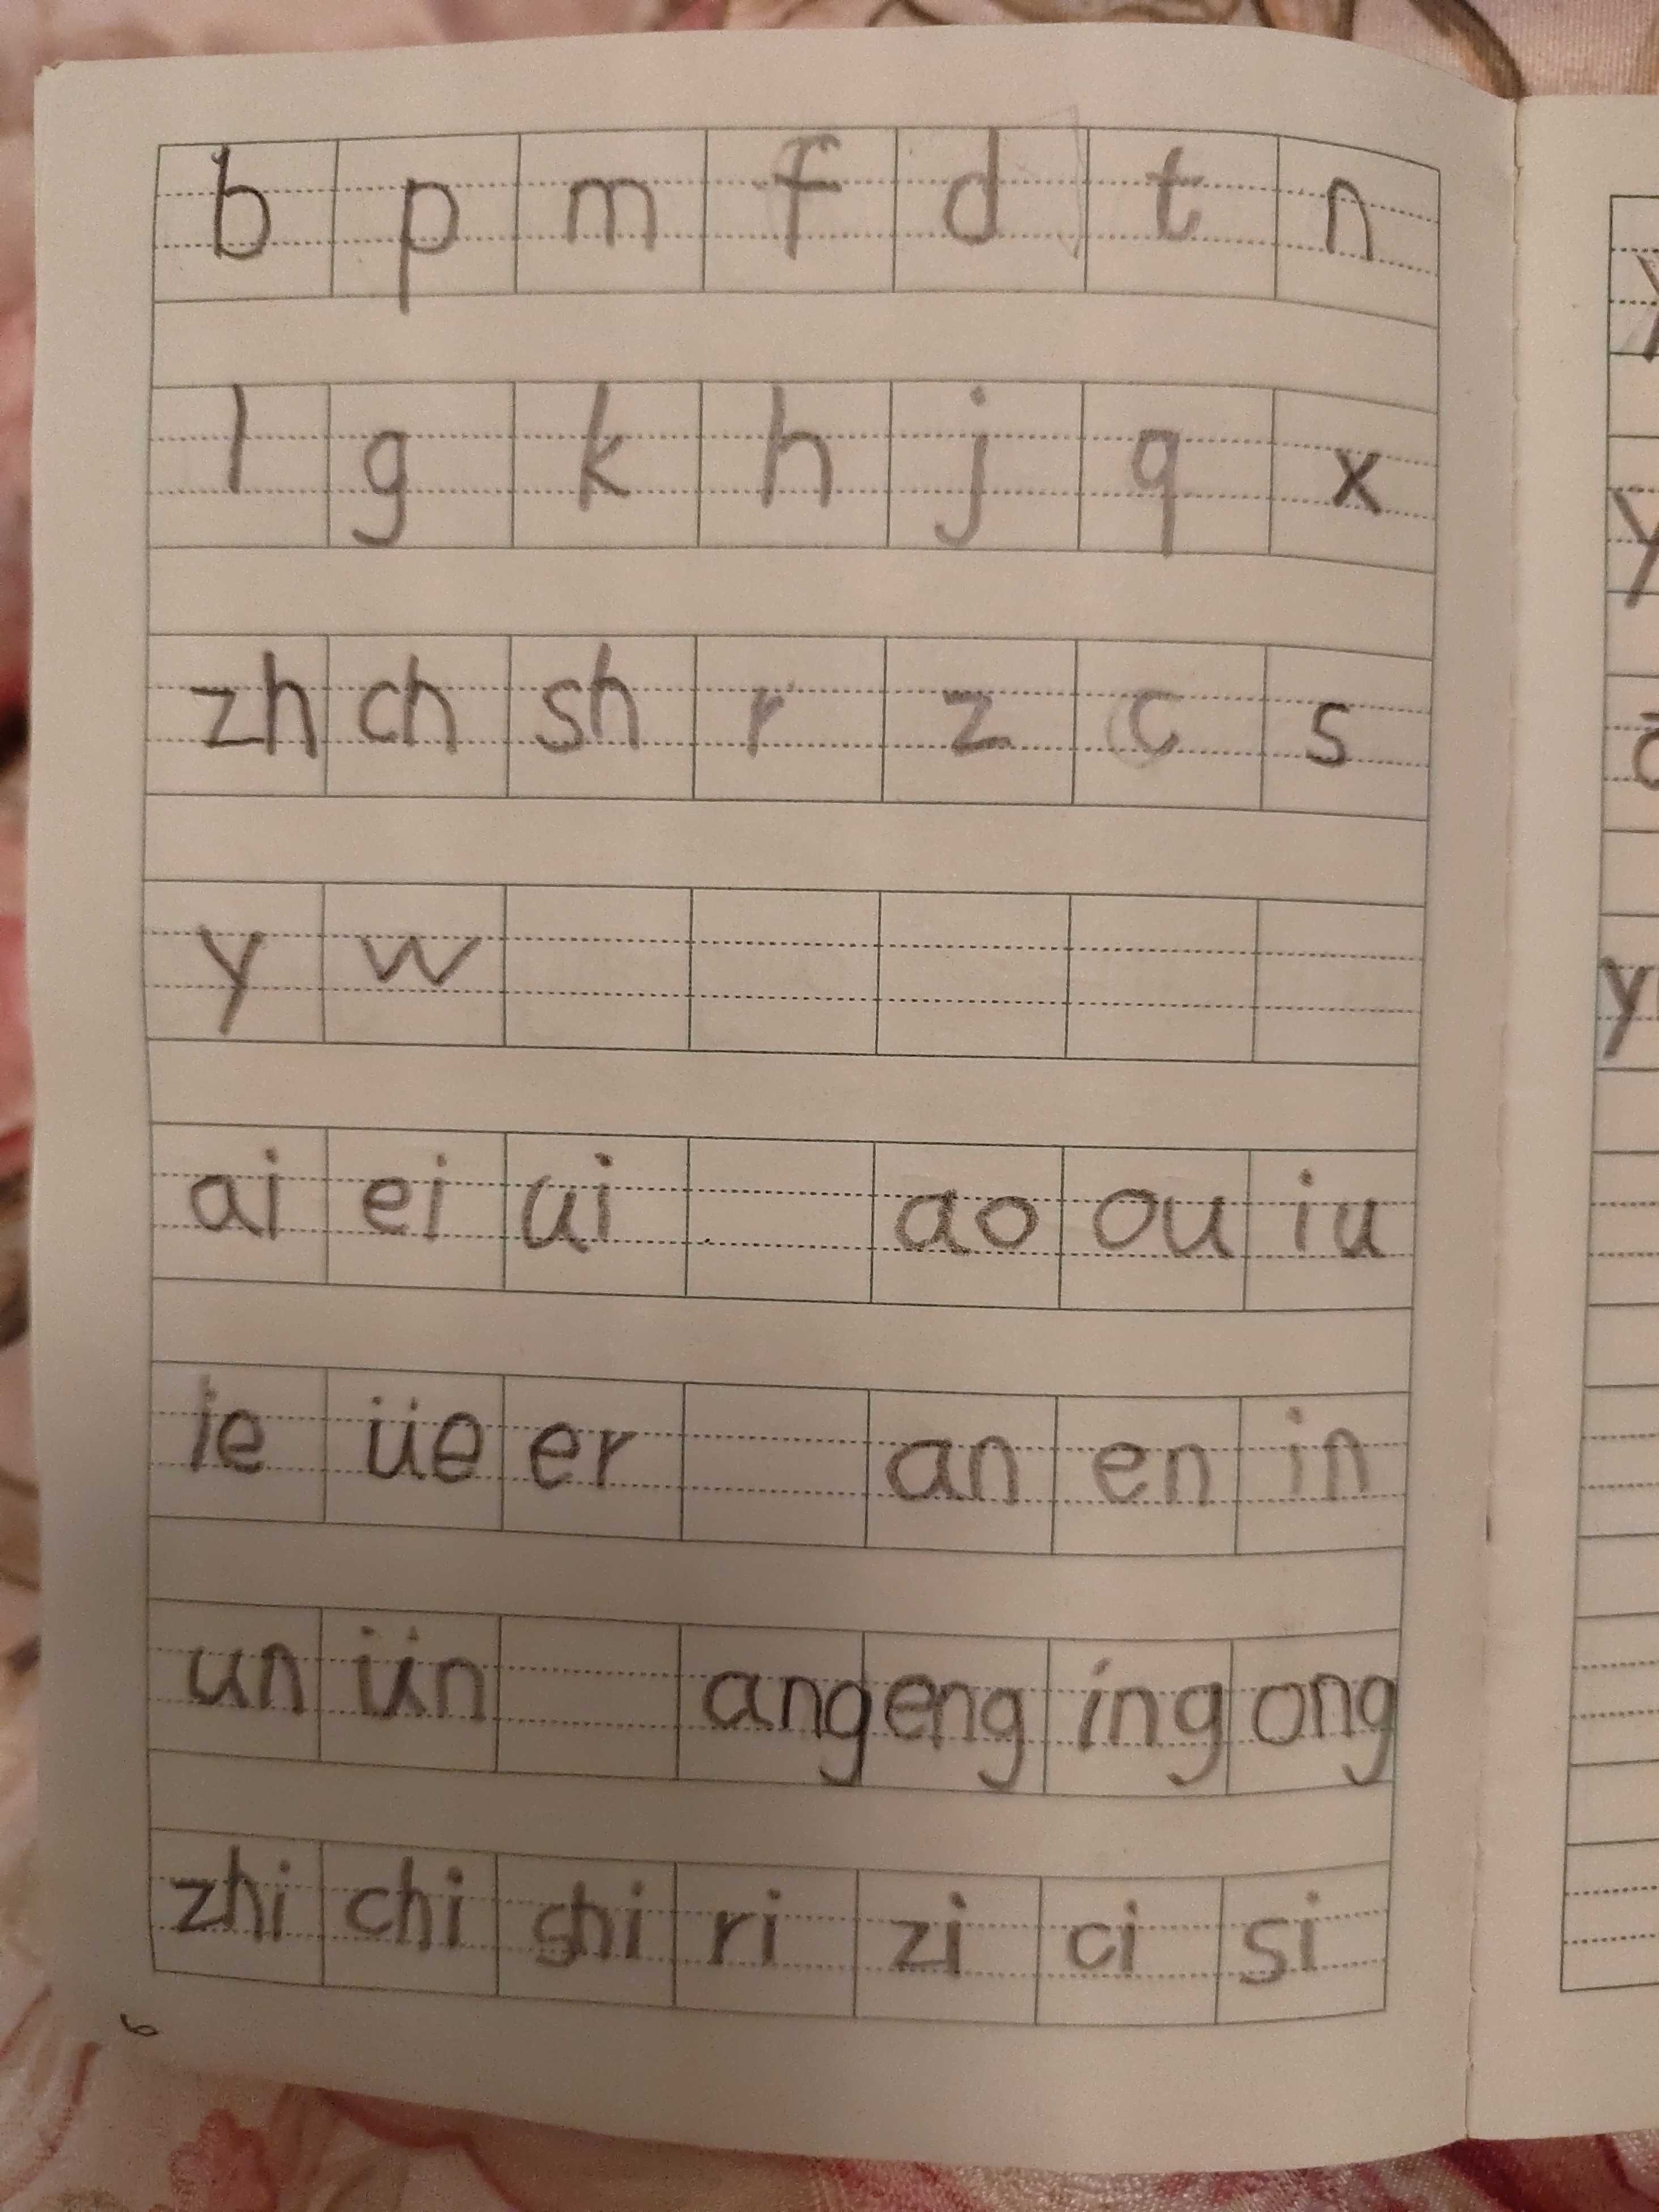 b p m f d t n
l g k h j q x
zh ch sh r z c s
y w
ai ei ui ao ou iu
ie üe er an en in
un ün ang eng ing ong
zhi chi shi ri zi ci si
6